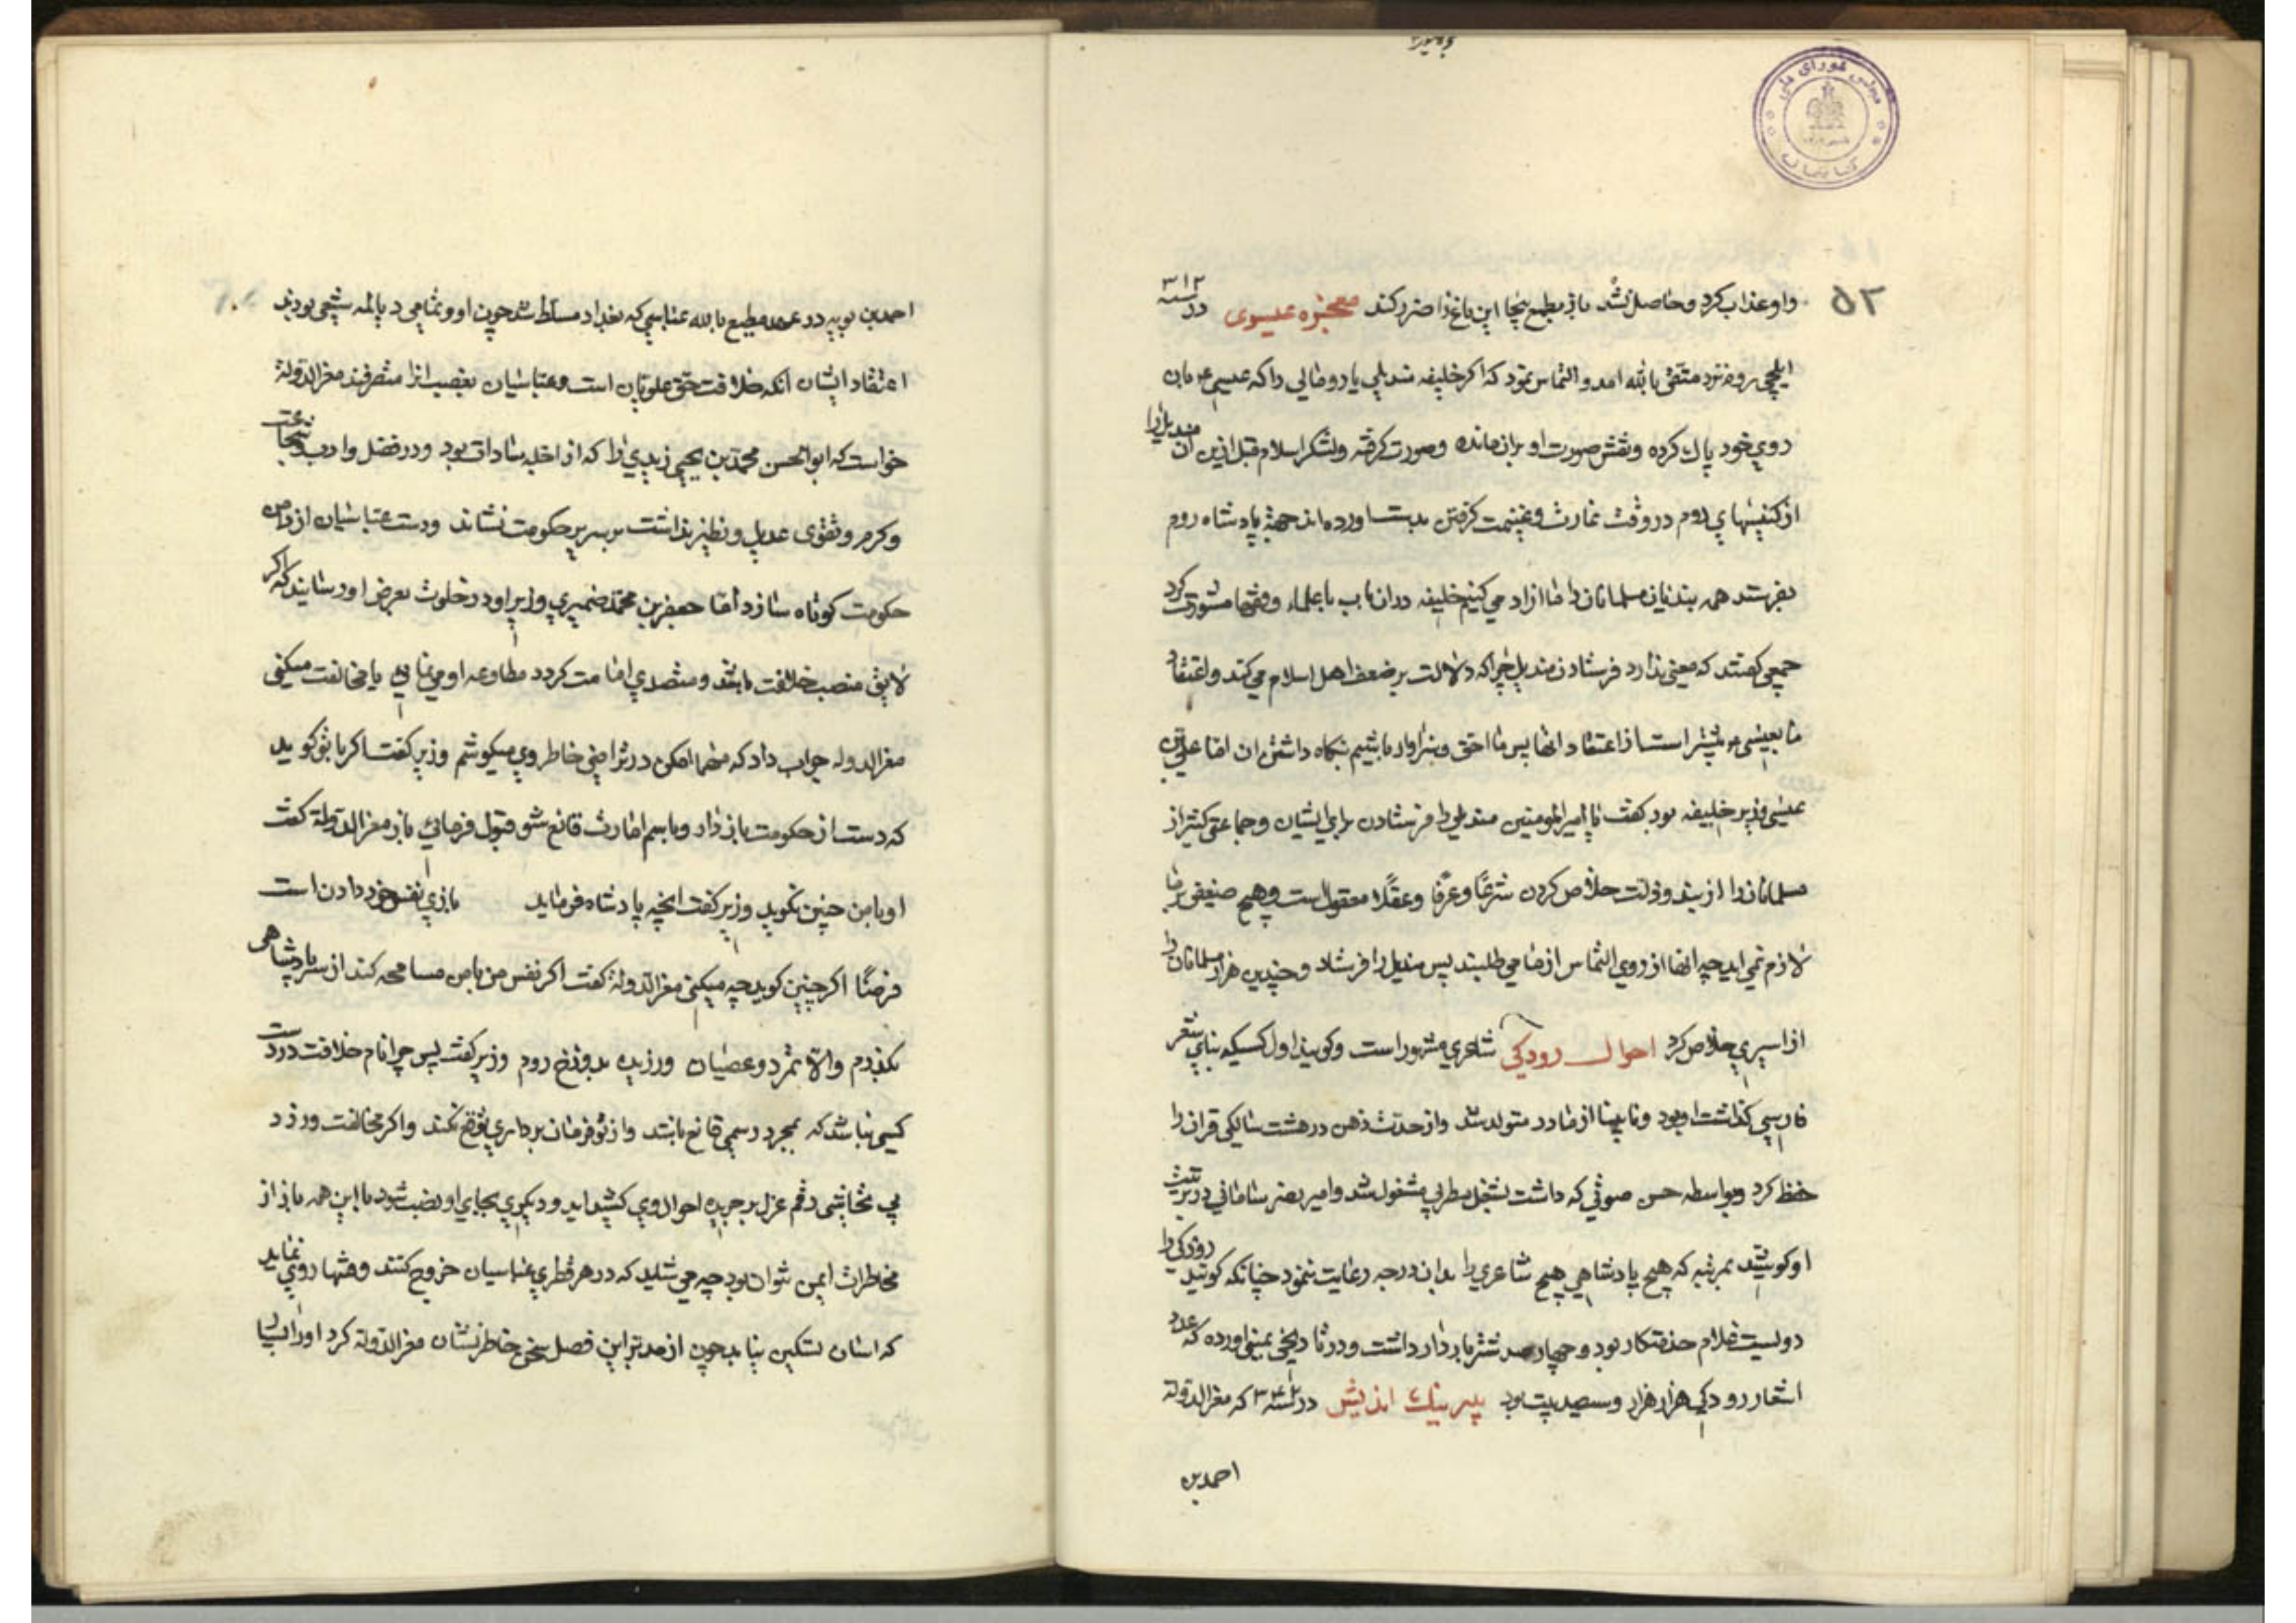 مجلس شورای ملی
کتابخانه
۵۲
و او عذاب کرد و حاصل نشد باز بطمع بیجا این باغ را ضرر کند معجزه عیسوی در سنه ۳۱۲
ایلچی روم نزد متقی بالله امد و التماس نمود که اکر خلیفه مندیلی یا رومالی را که عیسی ع بان
روی خود پاک کرده و نقش صورت او بران مانده و صورت کرفته و لشکر اسلام قبل ازین ان مندیل را
از کنیسهای روم در وقت غارت و غنیمت کرفتن بدست اورده اند جهة پادشاه روم
بفرستد همه بندیان مسلمانان را ما ازاد می کنیم خلیفه دران باب با علماء و فقها مشورت کرد
جمعی کفتند که معنی ندارد فرستادن مندیل چرا که دلالت بر ضعف اهل اسلام می کند و اعتقاد
ما بعیسی ع بیشتر است از اعتقاد انها پس ما احق و سزاوار باشیم بنکاه داشتن ان اما علی بن
عیسی وزیر خلیفه بود کفت یا امیر المومنین مندیلی را فرستادن برای ایشان و جماعتی کثیر از
مسلمانان را از بند و ذلت خلاص کردن شرعًا و عرفًا و عقلًا معقول است و هیچ ضعیفی بما
لازم نمی اید چه انها از روی التماس از ما می طلبند پس مندیل را فرستاد و چندین هزار مسلمانان را
از اسیری خلاص کرد احوال رودکی شاعری مشهور است و کویند اول کسیکه بنای شعر
فارسی کذاشت او بود و نابینا از مادر متولد شد و از حدت ذهن در هشت سالکی قران را
حفظ کرد و بواسطه حسن صوتی که داشت بشغل مطربی مشغول شد و امیر نصر سامانی در تربیت
او کوشید بمرتبه که هیچ پادشاهی هیچ شاعری را بدان درجه رعایت ننمود چنانکه کویند رودکی را
دویست غلام خدمتکار بود و چهار صد شتر بار دار داشت و در تاریخ یمینی اورده که عدد
اشعار رودکی هزار هزار و سیصد بیت بود پیر نیک اندیش در سنه ۳۳۴ که معز الدوله
احمد بن
احمد بن بویه در عهد مطیع بالله عباسی که بغداد مسلط شد چون او و تمامی دیالمه شیعی بودند
اعتقاد ایشان انکه خلافت حق علویان است و عباسیان بغصب انرا متصرفند معز الدوله
خواست که ابو الحسن محمد بن یحیی زیدی را که از اجله سادات بود و در فضل و ادب و شجاعت
و کرم و تقوی عدیل و نظیر نداشت بر سریر حکومت نشاند و دست عباسیان از دامن
حکومت کوتاه سازد اما جعفر بن محمد ضمیری وزیر او در خلوت بعرض او رسانید که اکر
لایق منصب خلافت باشد و متصدی امامت کردد مطاوعه او می نمایی یا مخالفت میکنی
معز الدوله جواب داد که مهما امکن در تراضی خاطر وی میکوشم وزیر کفت اکر با تو کوید
که دست از حکومت باز دار و باسم امارت قانع شو قبول فرمائی باز معز الدوله کفت
او با من چنین نکوید وزیر کفت انچه پادشاه فرماید بازی نفس خود دادن است
فرضًا اکر چنین کوید چه میکنی معز الدوله کفت اکر نفس من با من مسامحه کند از سر پادشاهی
بکذرم و الا تمرد و عصیان ورزیده بدوزخ روم وزیر کفت پس چرا نام خلافت در دست
کسی نباشد که بمجرد رسمی قانع باشد و از تو فرمان برداری توقع نکند و اکر مخالفت ورزد
بی تحاشی رقم عزل بر جریده احوال وی کشیده اید و دیکری بجای او نصب شود با این همه باز از
مخاطرات ایمن نتوان بود چه می شاید که در هر قطری عباسیان خروج کنند و فتنها روی نماید
که اسان تسکین نیابد چون از مدبر این فصل سخن خاطر نشان معز الدوله کرد او را بسیار